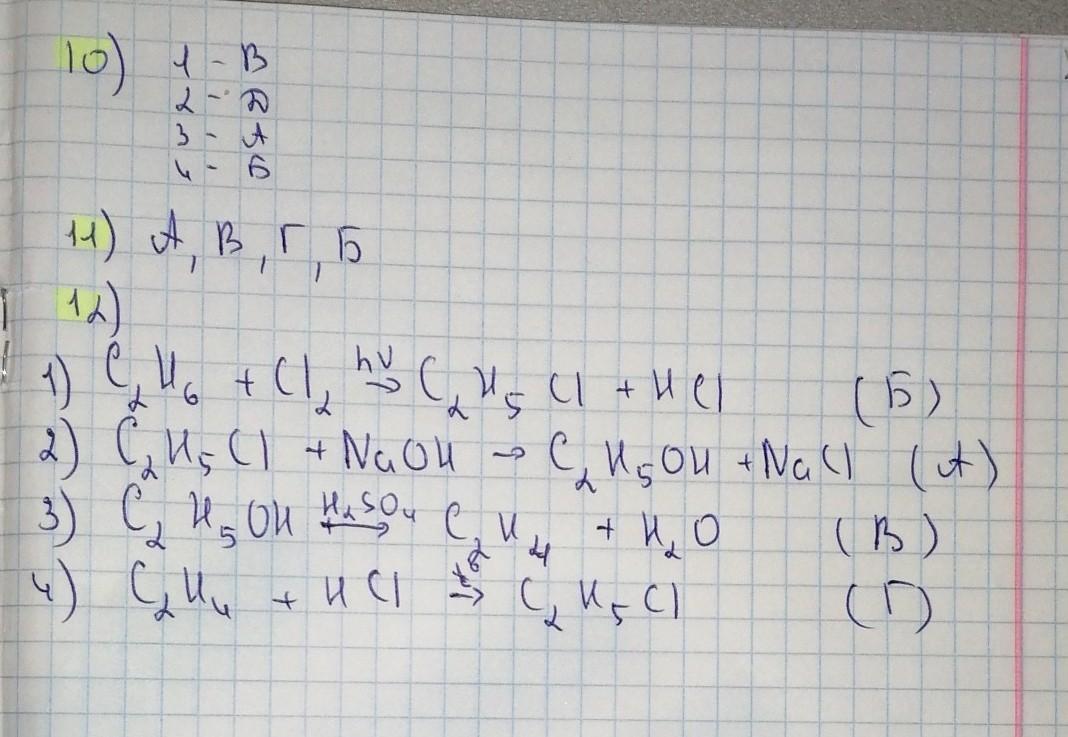 10) 1 - В
2 - Д
3 - А
4 - Б
11) А, В, Г, Б
12)
1) C₂H₆ + Cl₂ →(hν) C₂H₅Cl + HCl (Б)
2) C₂H₅Cl + NaOH → C₂H₅OH + NaCl (А)
3) C₂H₅OH →(H₂SO₄) C₂H₄ + H₂O (В)
4) C₂H₄ + HCl →(t°) C₂H₅Cl (Г)